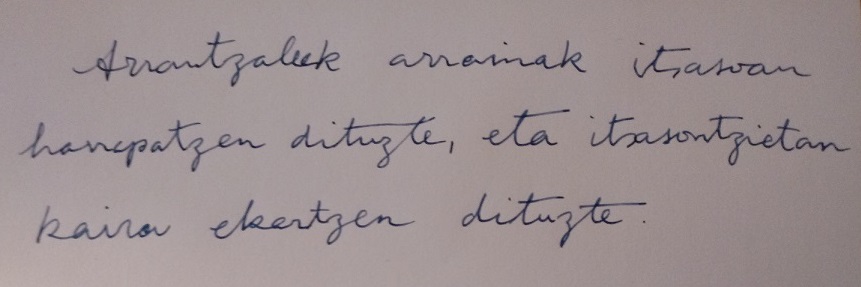 Arrantzaleek arrainak itsasoan
harrapatzen dituzte, eta itsasontzietan
kaira ekartzen dituzte.